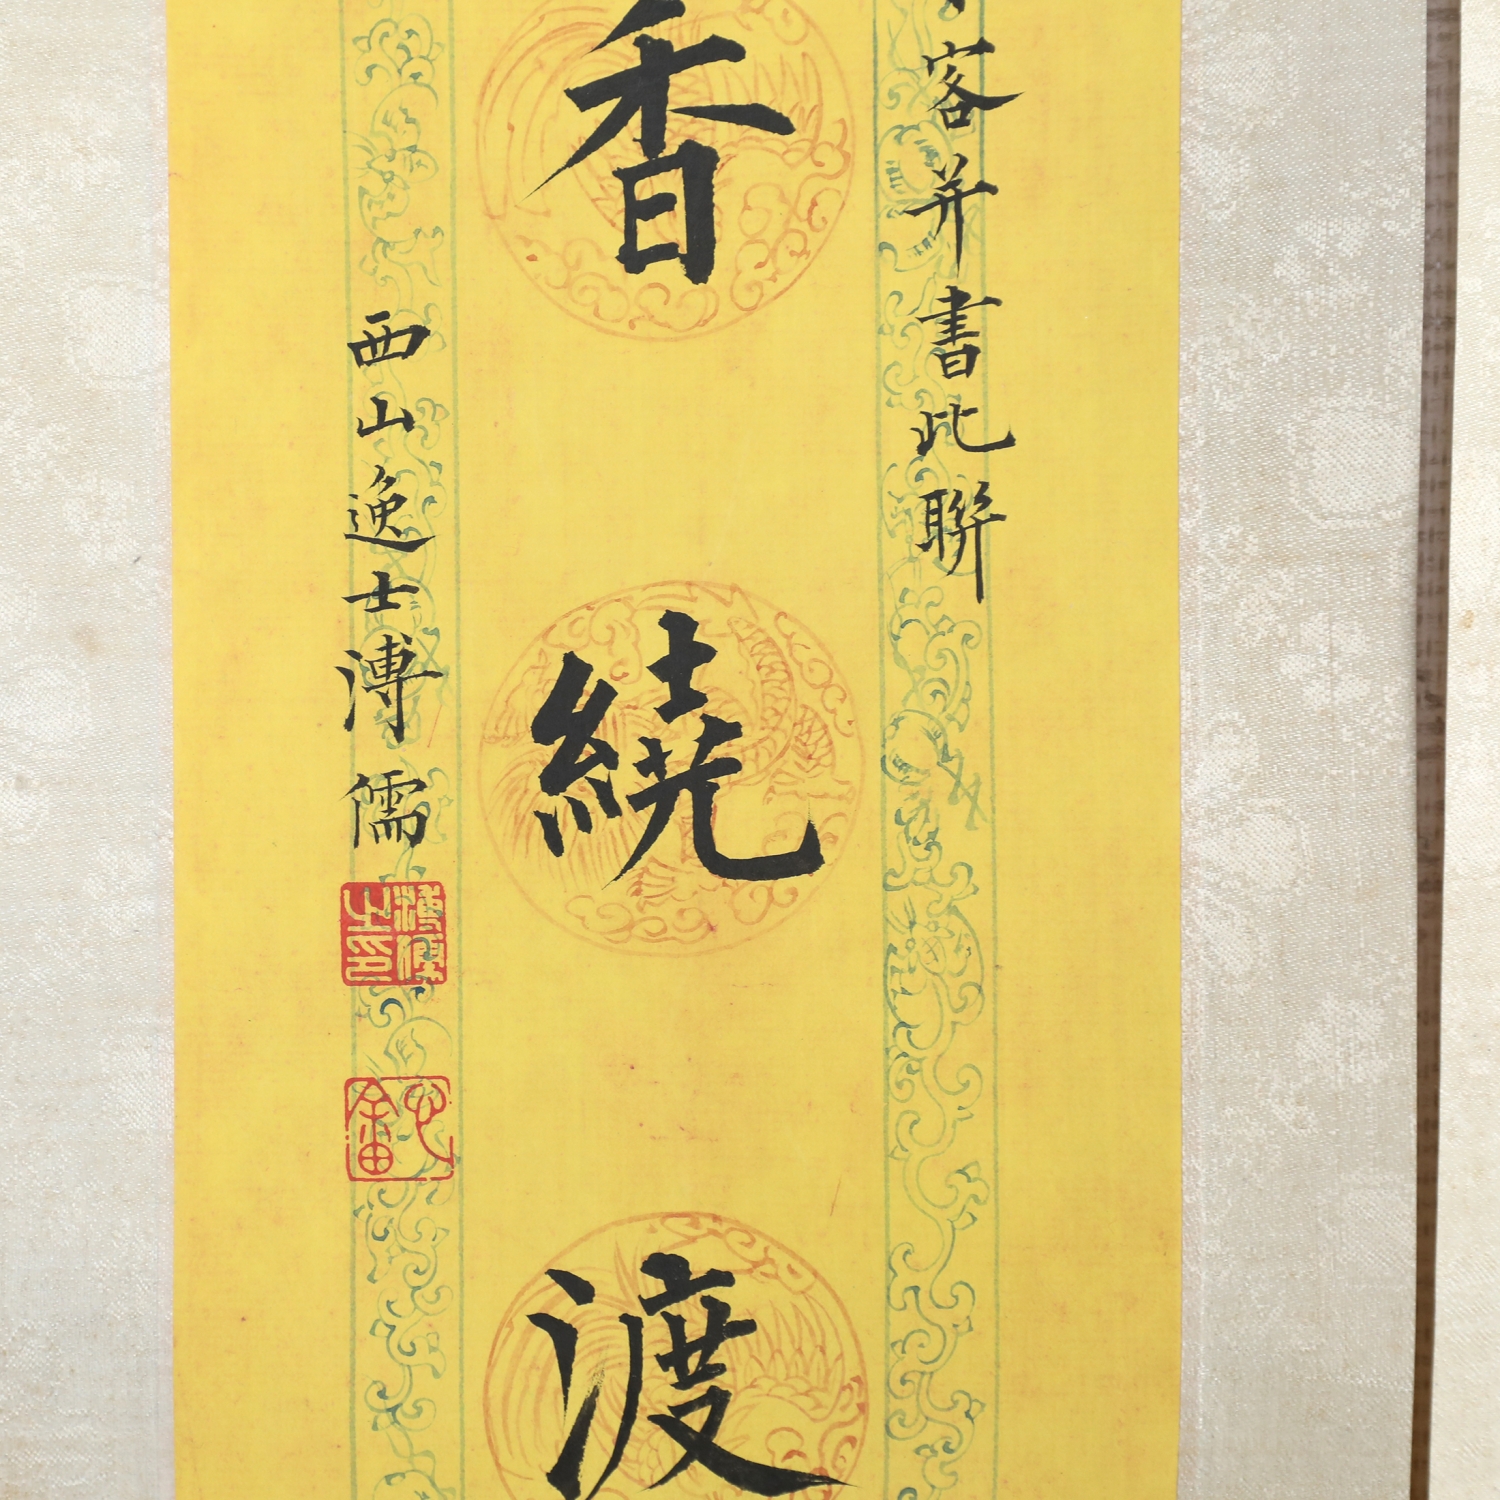 客并書此聯
香繞渡
西山逸士溥儒
溥儒之印
心畬